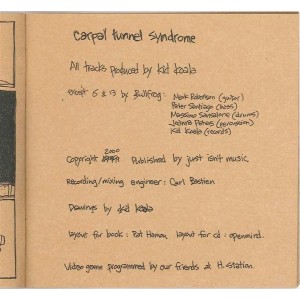 carpal tunnel syndrome
All tracks produced by kid koala
except 5 & 13 by Bullfrog: Mark Robertson (guitar)
Peter Santiago (bass)
Massimo Sansalone (drums)
(percussion)
Kid Koala (records)
Copyright 2000 Published by just isn't music.
Recording/mixing engineer: Carl Bastien
Drawings by kid koala
layout for book: Pat Hamou layout for cd: openmind.
Video game programmed by our friends at H. station.